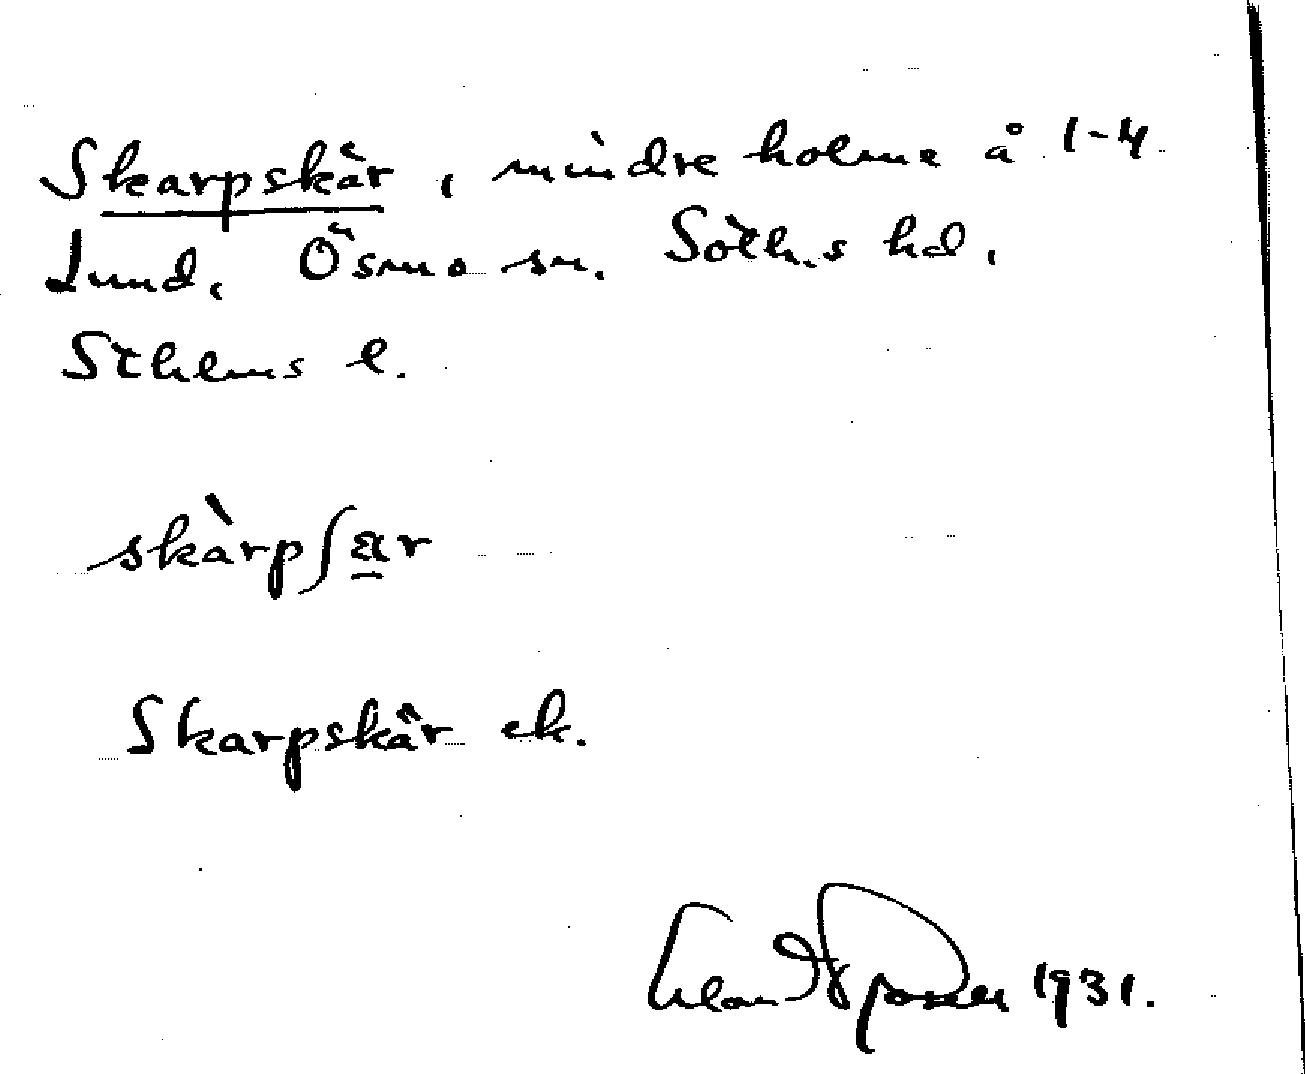 Skarpskär, mindre holme å 1-4
Lund, Ösmo sn. Soth.s hd,
Sthlms l.
skàrpʃa̲r
Skarpskär ek.
1931.